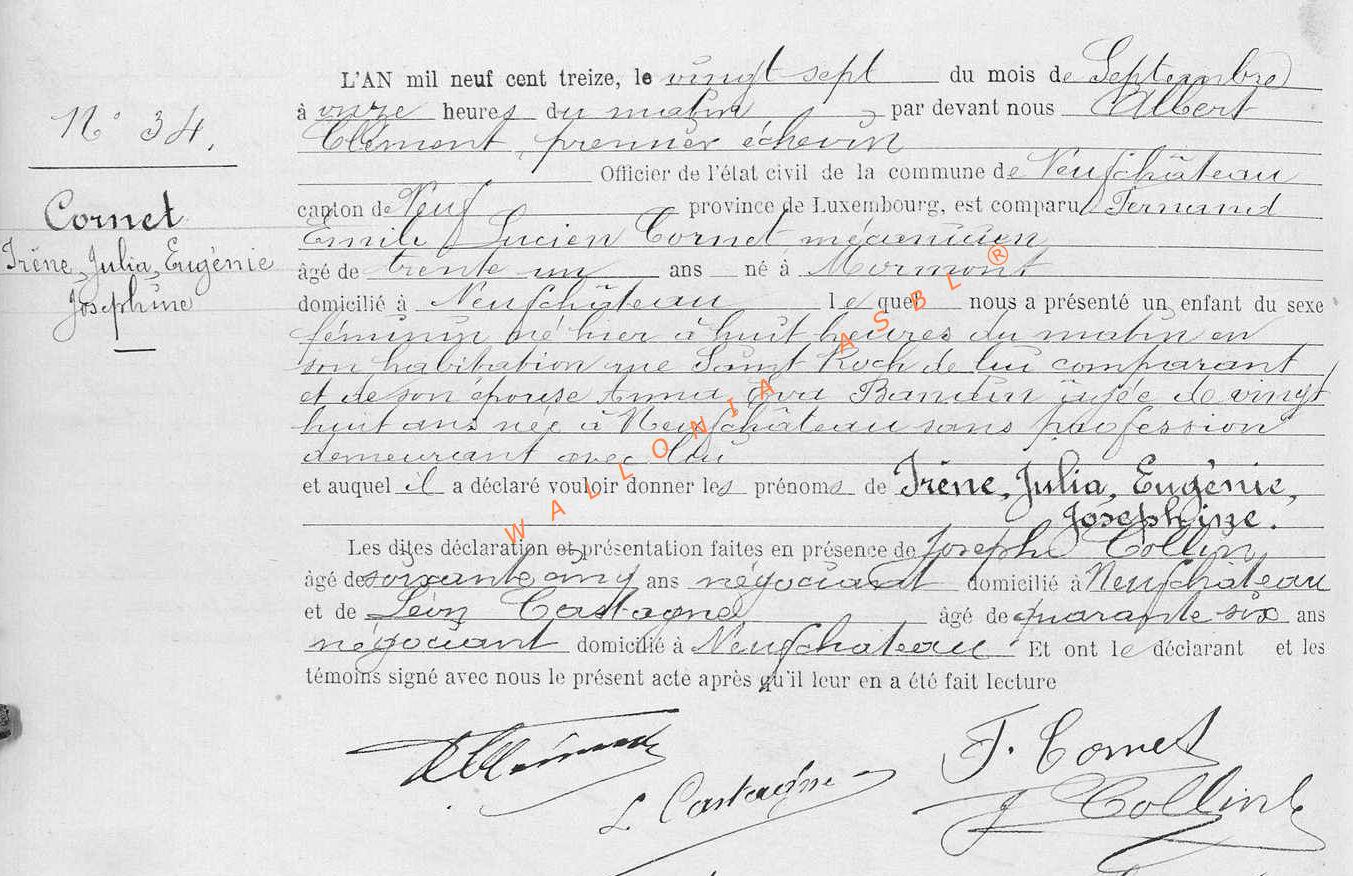 N° 34.
Cornet
Irène, Julia, Eugénie
Josephine
L'AN mil neuf cent treize, le vingt sept du mois de Septembre
à onze heures du matin par devant nous Albert
Clément, premier échevin
Officier de l'état civil de la commune de Neufchâteau
canton de Neuf province de Luxembourg, est comparu Fernand
Emile Lucien Cornet mécanicien
âgé de trente un ans né à Mormont
domicilié à Neufchâteau lequel nous a présenté un enfant du sexe
féminin né hier à huit heures du matin en
son habitation rue Saint Roch de lui comparant
et de son épouse Anna Baudin âgée de vingt
huit ans née à Neufchâteau sans profession
demeurant avec lui
et auquel il a déclaré vouloir donner les prénoms de Irène, Julia, Eugénie,
Josephine.
Les dites déclaration et présentation faites en présence de Joseph Collin
âgé de soixante cinq ans négociant domicilié à Neufchateau
et de Léon Castagne âgé de quarante six ans
négociant domicilié à Neufchateau Et ont le déclarant et les
témoins signé avec nous le présent acte après qu'il leur en a été fait lecture
WALLONIA ASBL ®
AClément
F. Cornet
L Castagne
J Collin